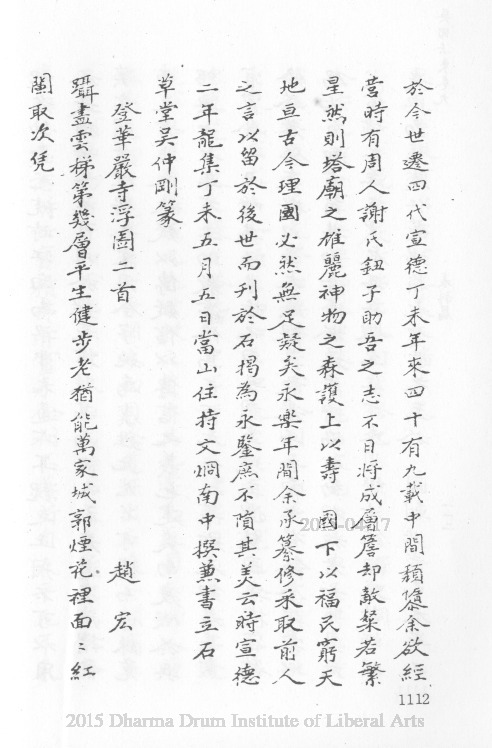 於今世遷四代宣德丁未年來四十有九載中間頹隳余欲經
營時有周人謝氏鈕子助吾之志不日將成層簷却敵粲若繁
星然則塔廟之雄麗神物之森護上以壽 國下以福民窮天
地亘古今理國必然無足疑矣永樂年間余承纂修采取前人
之言以留於後世而刊於石揭為永鑒庶不隕其美云時宣德
二年龍集丁未五月五日當山住持文烱南中撰兼書立石
草堂吳仲剛篆
登華嚴寺浮圖二首 趙宏
躡盡雲梯第幾層平生健步老猶能萬家城郭煙花裡面〻紅
闌取次凭
1112
2015 Dharma Drum Institute of Liberal Arts